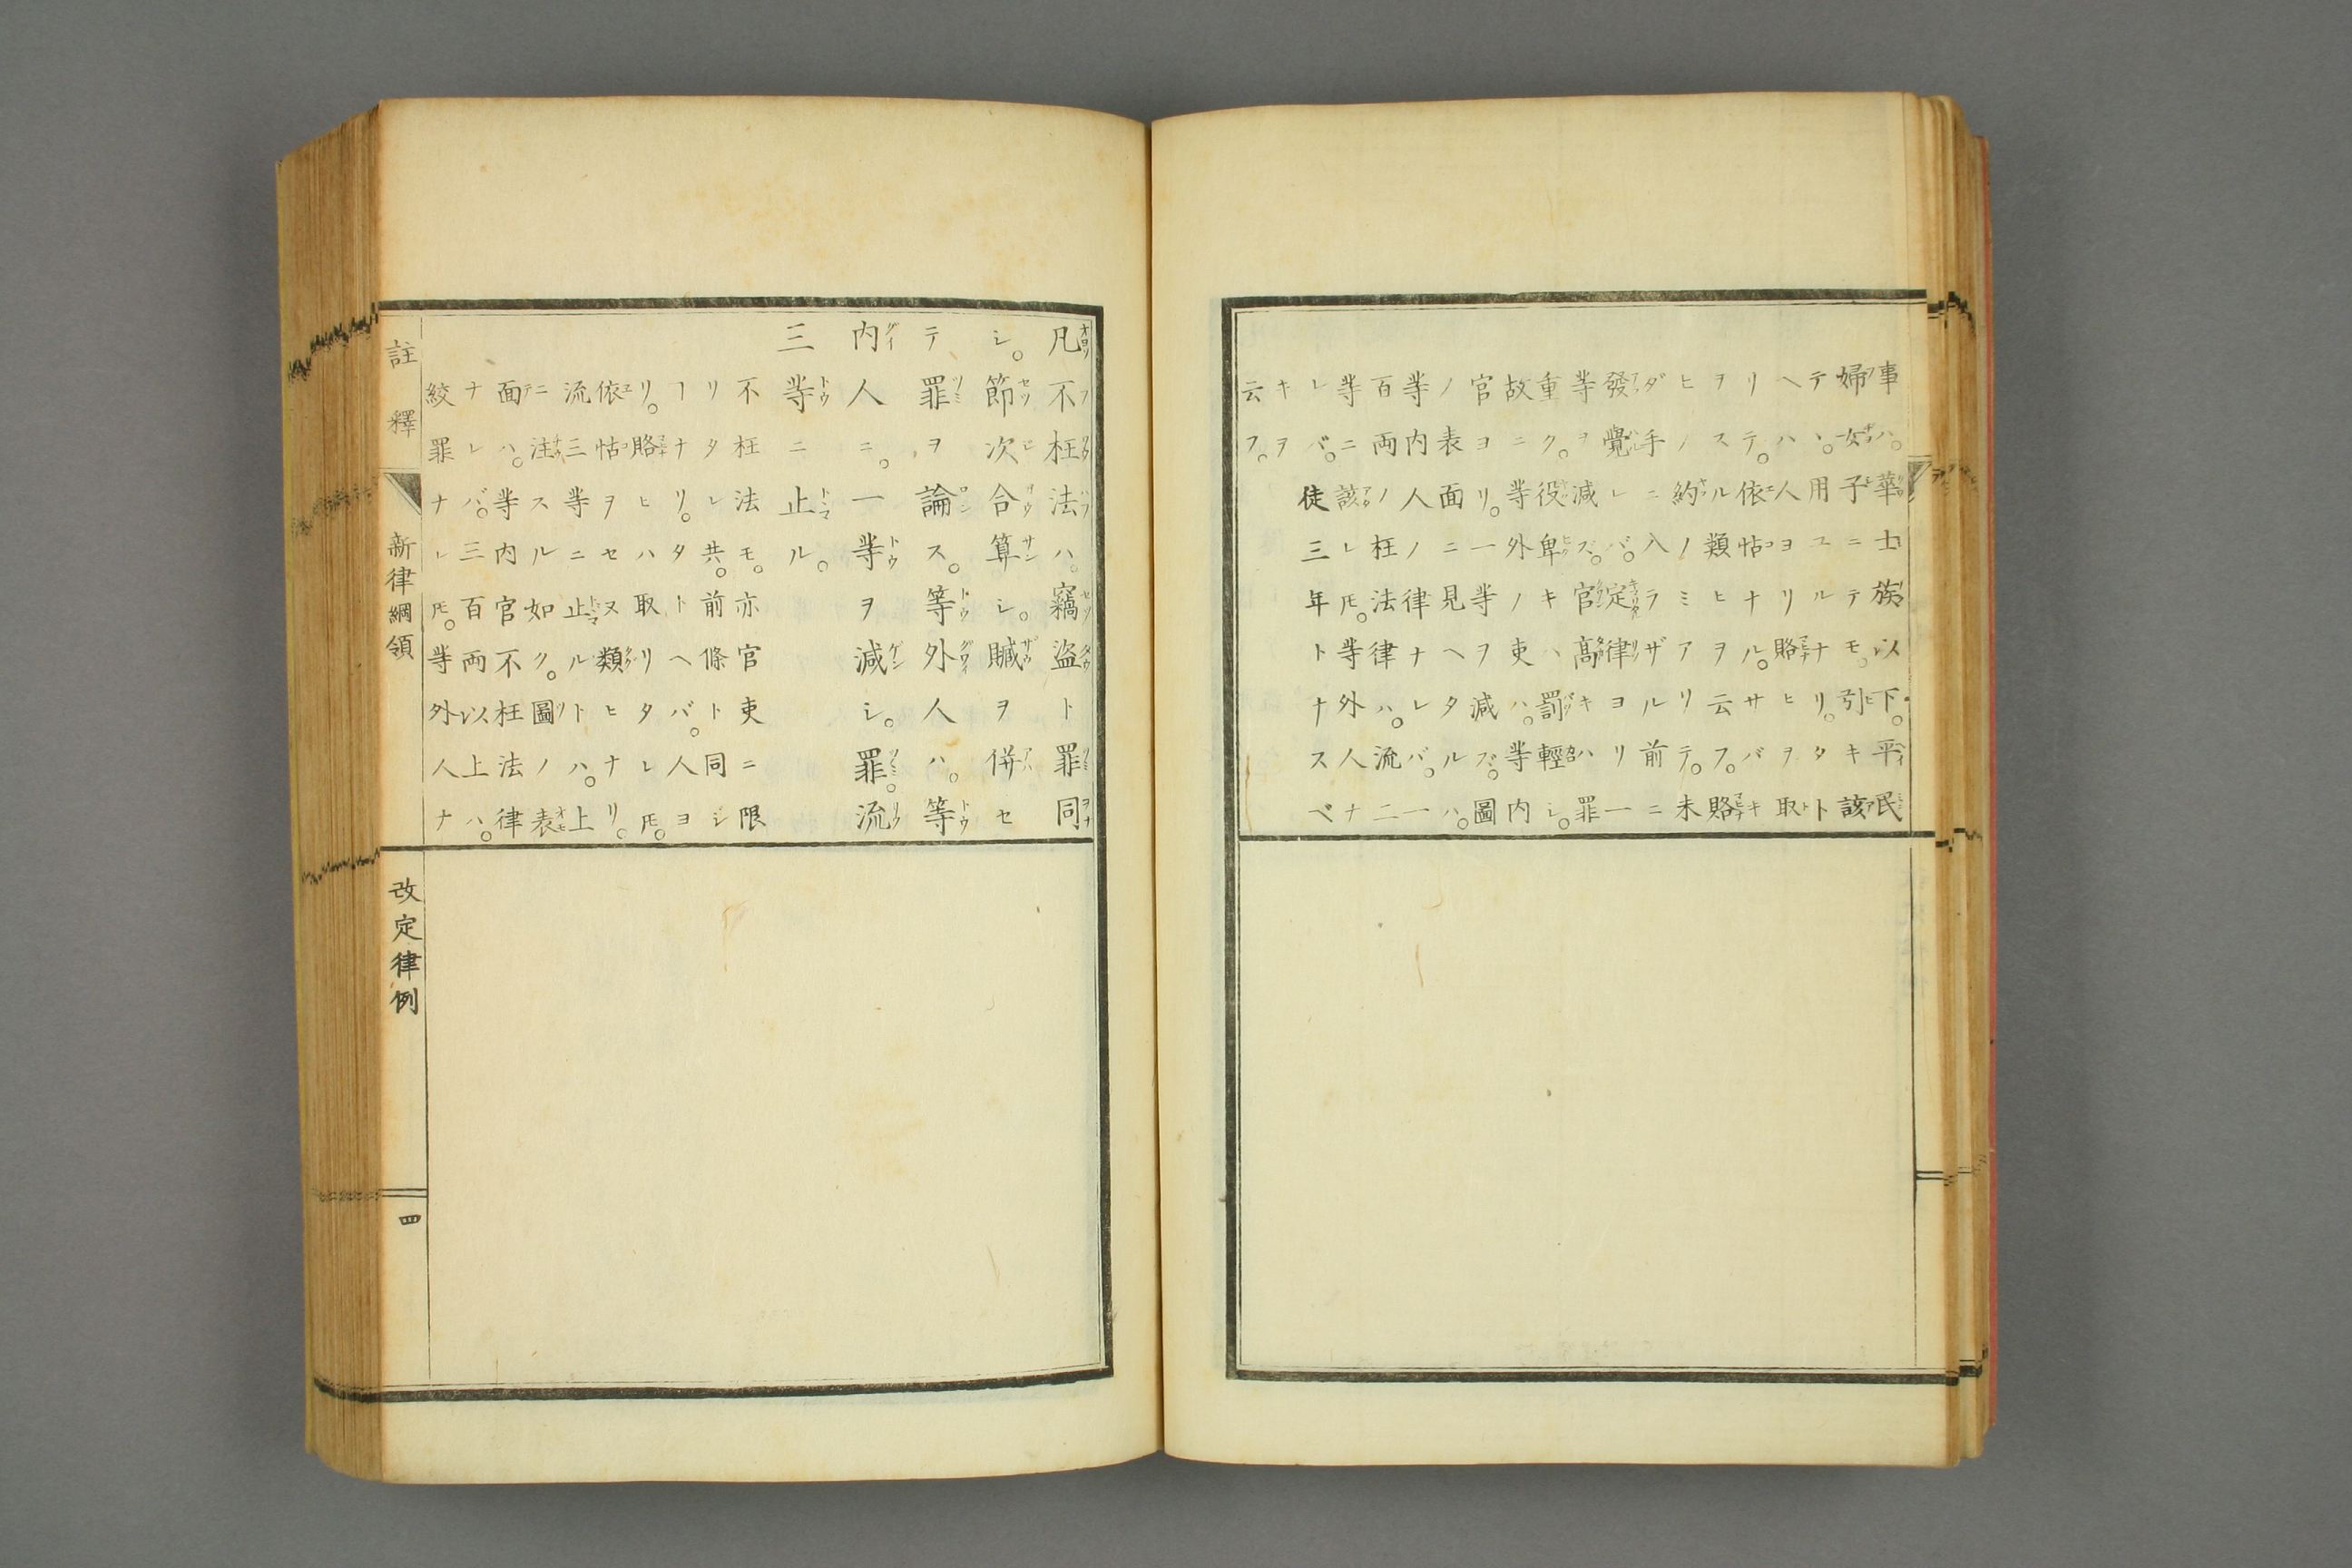 事ハ。華士族以下。平民
婦女子ニテモ。引キ該
テヽ。用ユルナリ。タト
ヘハ人ヨリ賂ヒヲ取
リテ。依怙ナル。サバキ
ヲスル類ヒヲ云フ。賂
ヒノ約ノミアリテ。未
ダ手ニ入ラザル前ニ
發覺レバ。定律ヨリ一
等ヲ減ズ。官高キハ罪
重ク。役卑キハ罰輕シ。
故ニ等外ノ吏ハ。等内
官ヨリ。一等ヲ減ズ。圖
ノ表面ニ見ヘタルハ。
等内人ノ律ナレバ。一
百両ノ枉法律ハ。流二
等ニ該レ𪜈。等外人ナ
レバ。徒三年トナスベ
キヲ
云フ。
凡不枉法ハ。竊盗ト罪同
シ。節次合算シ。贓ヲ併セ
テ罪ヲ論ス。等外人ハ。等
内人ニ。一等ヲ減シ。罪。流
三等ニ止ル。
不枉法モ。亦官吏ニ限
リタレ共。前條ト同シ
ヿナリ。タトヘバ。人ヨ
リ。賂ヒハ取リタレ𪜈。
依怙ヲセヌ類ヒナリ。
流三等ニ止ルトハ。上
ニ注スル如ク。圖ノ表
面ハ。等内官不枉法律
ナレバ。三百両以上ハ。
絞罪ナレ𪜈。等外人ナ
註釋 新律綱領 改定律例 四